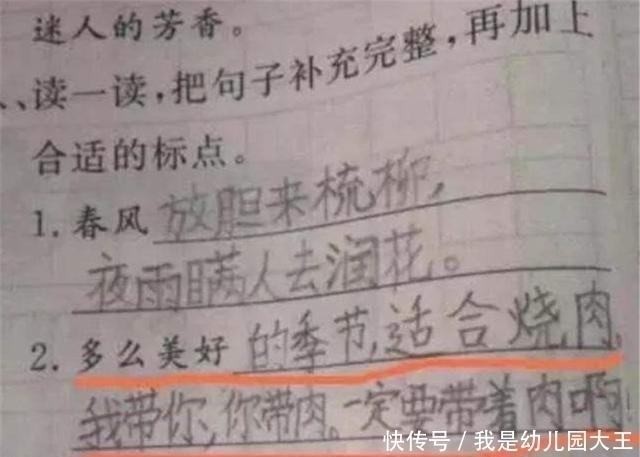 迷人的芳香。
、读一读,把句子补充完整,再加上
合适的标点。
1. 春风 放胆来梳柳,
夜雨瞒人去润花。
2. 多么美好 的季节,适合烧肉,
我带你,你带肉。一定要带着肉啊!
快传号 / 我是幼儿园大王